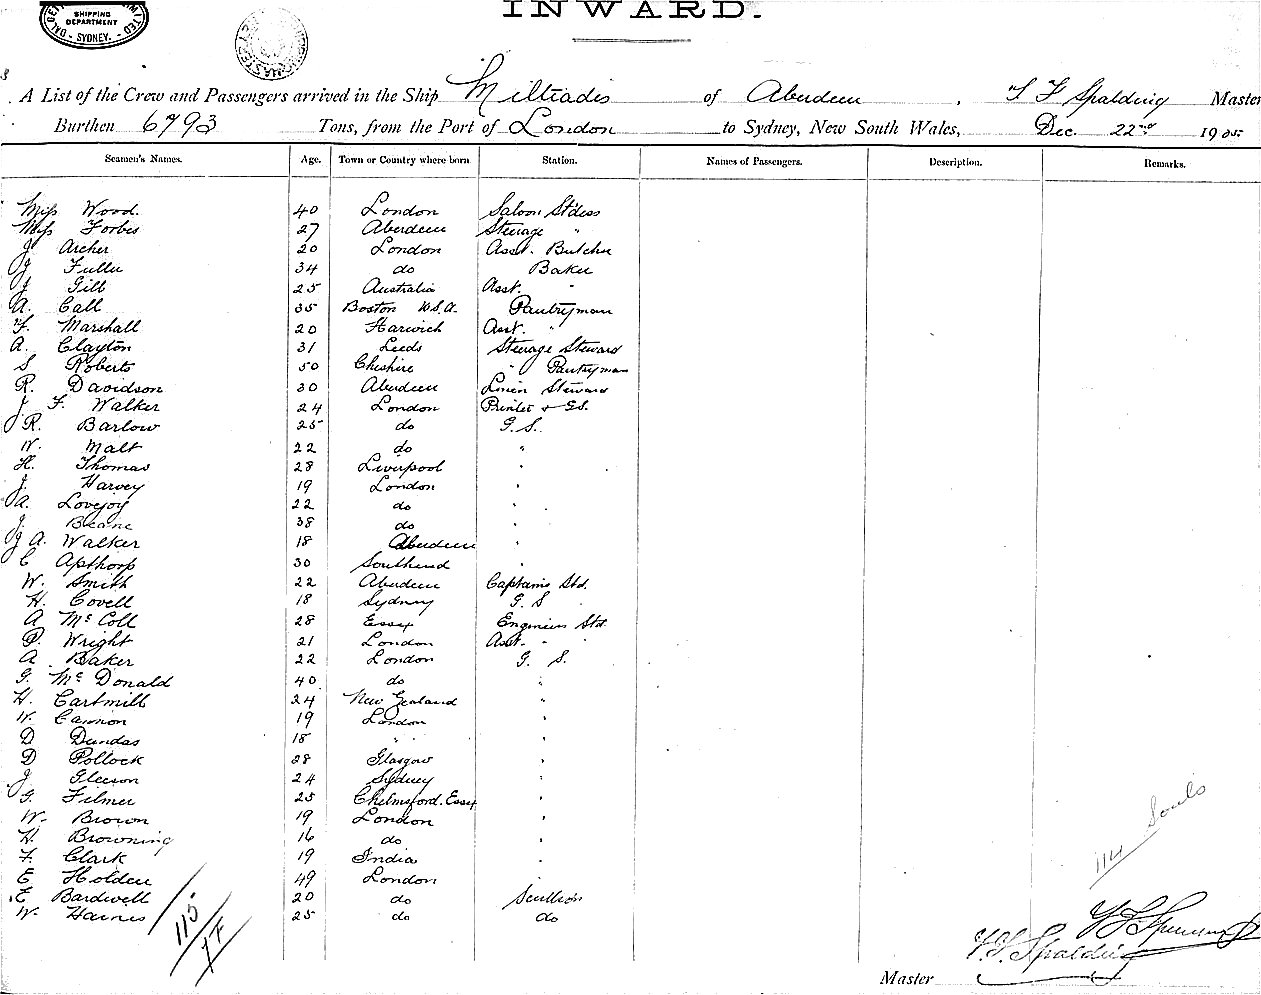 SHIPPING
DEPARTMENT
- SYDNEY. -
INWARD.
A List of the Crew and Passengers arrived in the Ship Miltiades of Aberdeen, Spalding Master
Burthen 6793 Tons, from the Port of London to Sydney, New South Wales, Dec. 22nd 1905
Seamen's Names. Age. Town or Country where born Station. Names of Passengers. Description. Remarks.
Miss Wood. 40 London Saloon St'dess
Miss Forbes 27 Aberdeen Steerage "
J Archer 20 London Asst. Butcher
J Fuller 34 do Baker
J Gill 25 Australia Asst. "
A. Call 35 Boston U.S.A. Pantryman
F. Marshall 20 Harwich Asst. "
A. Clayton 31 Leeds Steerage Steward
S Roberts 50 Cheshire " Pantryman
R. Davidson 30 Aberdeen Linen Steward
J. F. Walker 24 London Printer & G.S.
J R. Barlow 25 do G.S.
W. Malt 22 do "
H. Thomas 28 Liverpool "
J. Harvey 19 London "
A. Lovejoy 22 do "
J. Beane 38 do "
J A. Walker 18 Aberdeen "
C Apthorp 30 Southend "
W. Smith 22 Aberdeen Captains Std.
H. Covell 18 Sydney G. S
A McColl 28 Essex Engineers Std.
P. Wright 21 London Asst. " "
A. Baker 22 London G. S.
G. McDonald 40 do "
H. Cartmill 24 New Zealand "
W. Cannon 19 London "
D Dundas 18 " "
D Pollock 28 Glasgow "
J Gleeson 24 Sydney "
G. Filmer 25 Chelmsford. Essex "
W. Brown 19 London "
H. Browning 16 do "
F. Clark 19 India "
E Holden 49 London
E Bardwell 20 do Scullion
W. Haines 25 do do
115
114 Souls
Spalding
Master